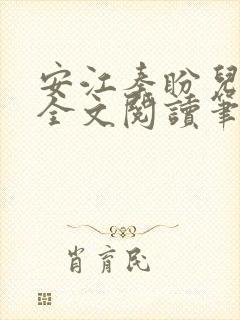 安江秦盼兒
全文閱讀筆
肖育民